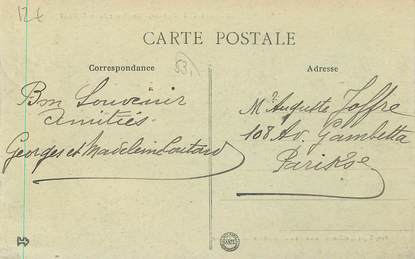 12€
CARTE POSTALE
Correspondance
53.
Adresse
Bon Souvenir
Amitiés
Georges et Madeleine
Mr Auguste Joffre
108 Av. Gambetta
Paris 20e